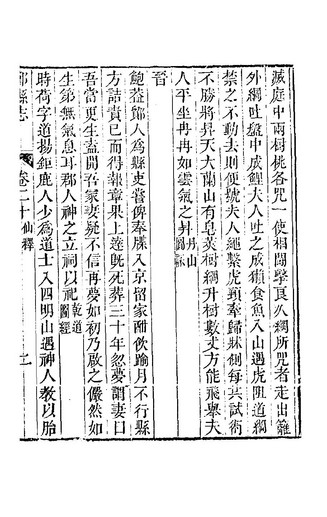 盛庭中兩株桃各咒一使相鬬擊良久綱所咒者走出籬
外綱吐盤中成鯉夫人吐之成獺食魚入山遇虎阻道綱
禁之不動去則便號夫人繩繫虎頸牽歸牀側每共試術
不勝將昇天大蘭山有皂莢樹綱升樹數丈方能飛舉夫
人平坐冉冉如雲氣之昇丹山圖詠
晉
鮑葢鄮人為縣吏嘗俾奉牒入京留家酣飲踰月不行縣
方詰責已而得報章果上達旣死葬三十年忽夢謂妻曰
吾當更生盍開吾冢妻疑不信再夢如初乃啟之儼然如
生第無氣息耳郡人神之立祠以祀乾道圖經
時荷字道揚鉅鹿人少為道士入四明山遇神人教以胎
鄞縣志 卷二十 仙釋